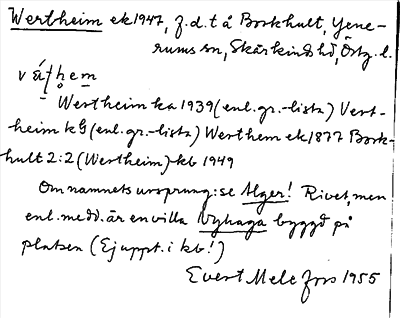 Wertheim ek 1947, f.d.t å Borkhult, Yxne-
rums sn, Skärkinds hd, Östg. l.
vǽ̨ṭhem
Wertheim ka 1939 (enl. gr.-lista) Vert-
heim kG (enl. gr.-lista) Werthem ek 1877 Bork-
hult 2:2 (Wertheim) kb 1949
Om namnets ursprung: se Alger! Rivet, men
enl. medd. är en villa Nyhaga byggd på
platsen (Ej uppt. i kb!)
Evert Melefors 1955